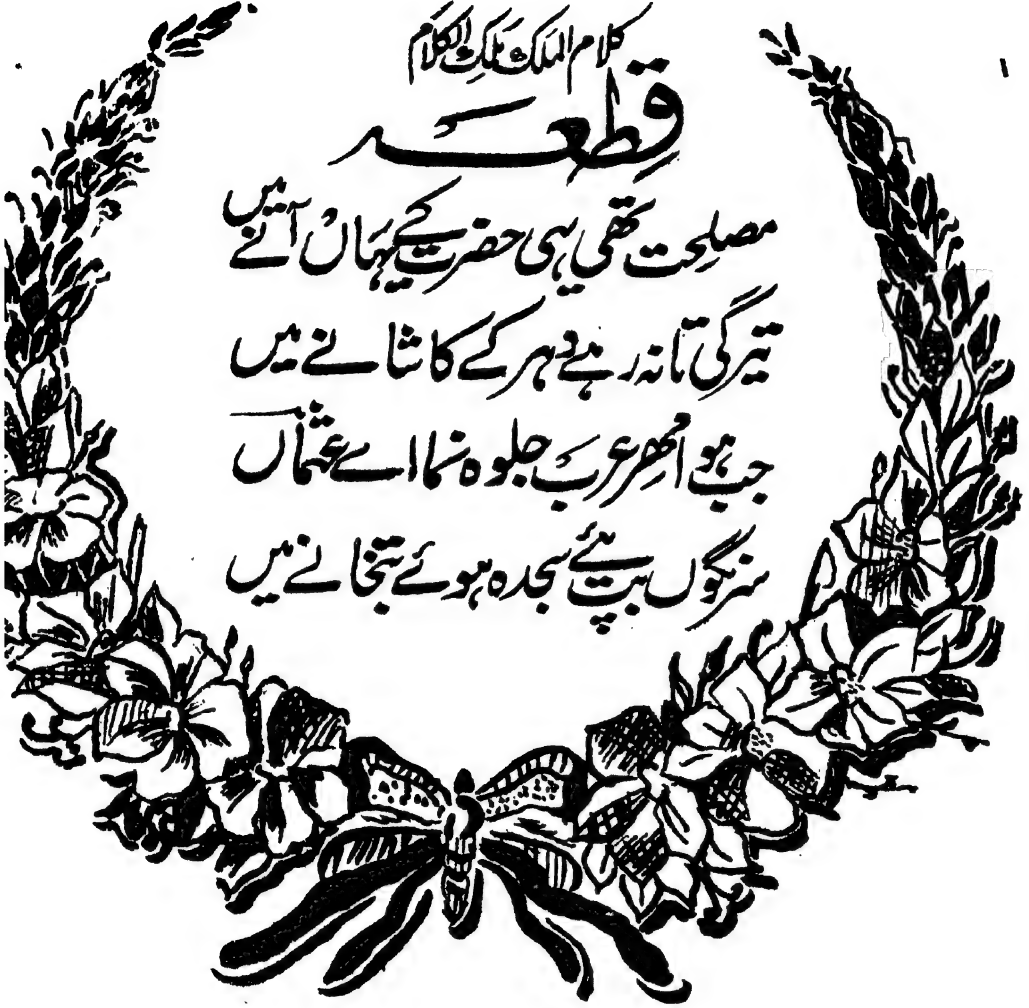 کلام الملک ملک الکلام
قطعہ
مصلحت تھی یہی حضرت کے یہاں آنے میں
تیرگی تا نہ رہے دہر کے کاشانے میں
جب ہوا مھر عرب جلوہ نما اے عثماںؔ
سرنگوں بت پئے سجدہ ہوئے بتخانے میں